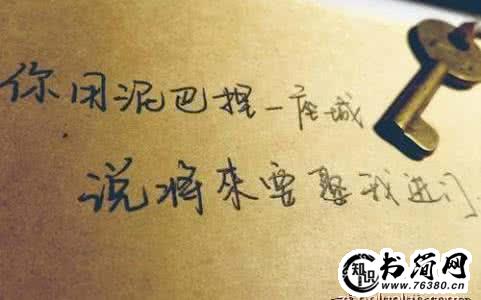 你用泥巴捏一座城
说将来要娶我进门
知识
书简网
www.76380.cn